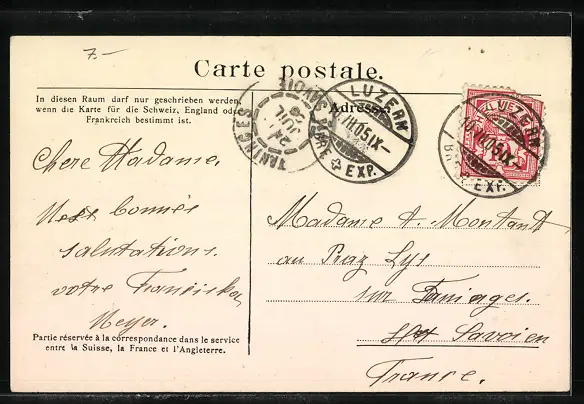 7.-
Carte postale.
In diesen Raum darf nur geschrieben werden,
wenn die Karte für die Schweiz, England oder
Frankreich bestimmt ist.
Adresse
TANINGES
24 JUIL 05
LUZERN
VII.05.IX-
BRF. EXP.
LUZERN
VII.05.IX-
EXP.
Chere Madame,
bonnes
salutations.
votre Franziska
Meyer.
Madame A. Montant
au Praz Lys
sur Taninges.
Savoien
France.
Partie réservée à la correspondance dans le service
entre la Suisse, la France et l'Angleterre.